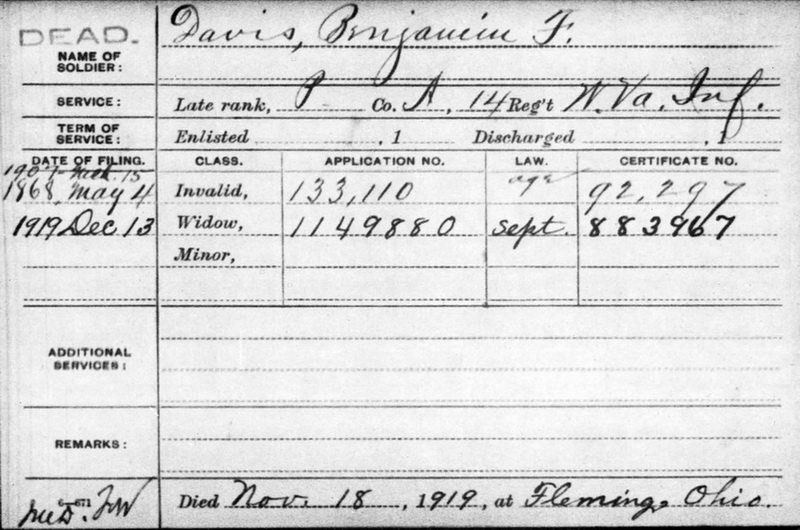 DEAD.
NAME OF SOLDIER: Davis, Benjamin F.
SERVICE: Late rank, P Co. A, 14 Reg't W. Va. Inf.
TERM OF SERVICE: Enlisted , 1 Discharged , 1
DATE OF FILING. CLASS. APPLICATION NO. LAW. CERTIFICATE NO.
1907- Mch. 15 age
1868, May 4 Invalid, 133,110 92,297
1919 Dec 13 Widow, 1149880 Sept. 883967
Minor,
ADDITIONAL SERVICES:
REMARKS:
6-671
Died Nov. 18, 1919, at Fleming, Ohio.